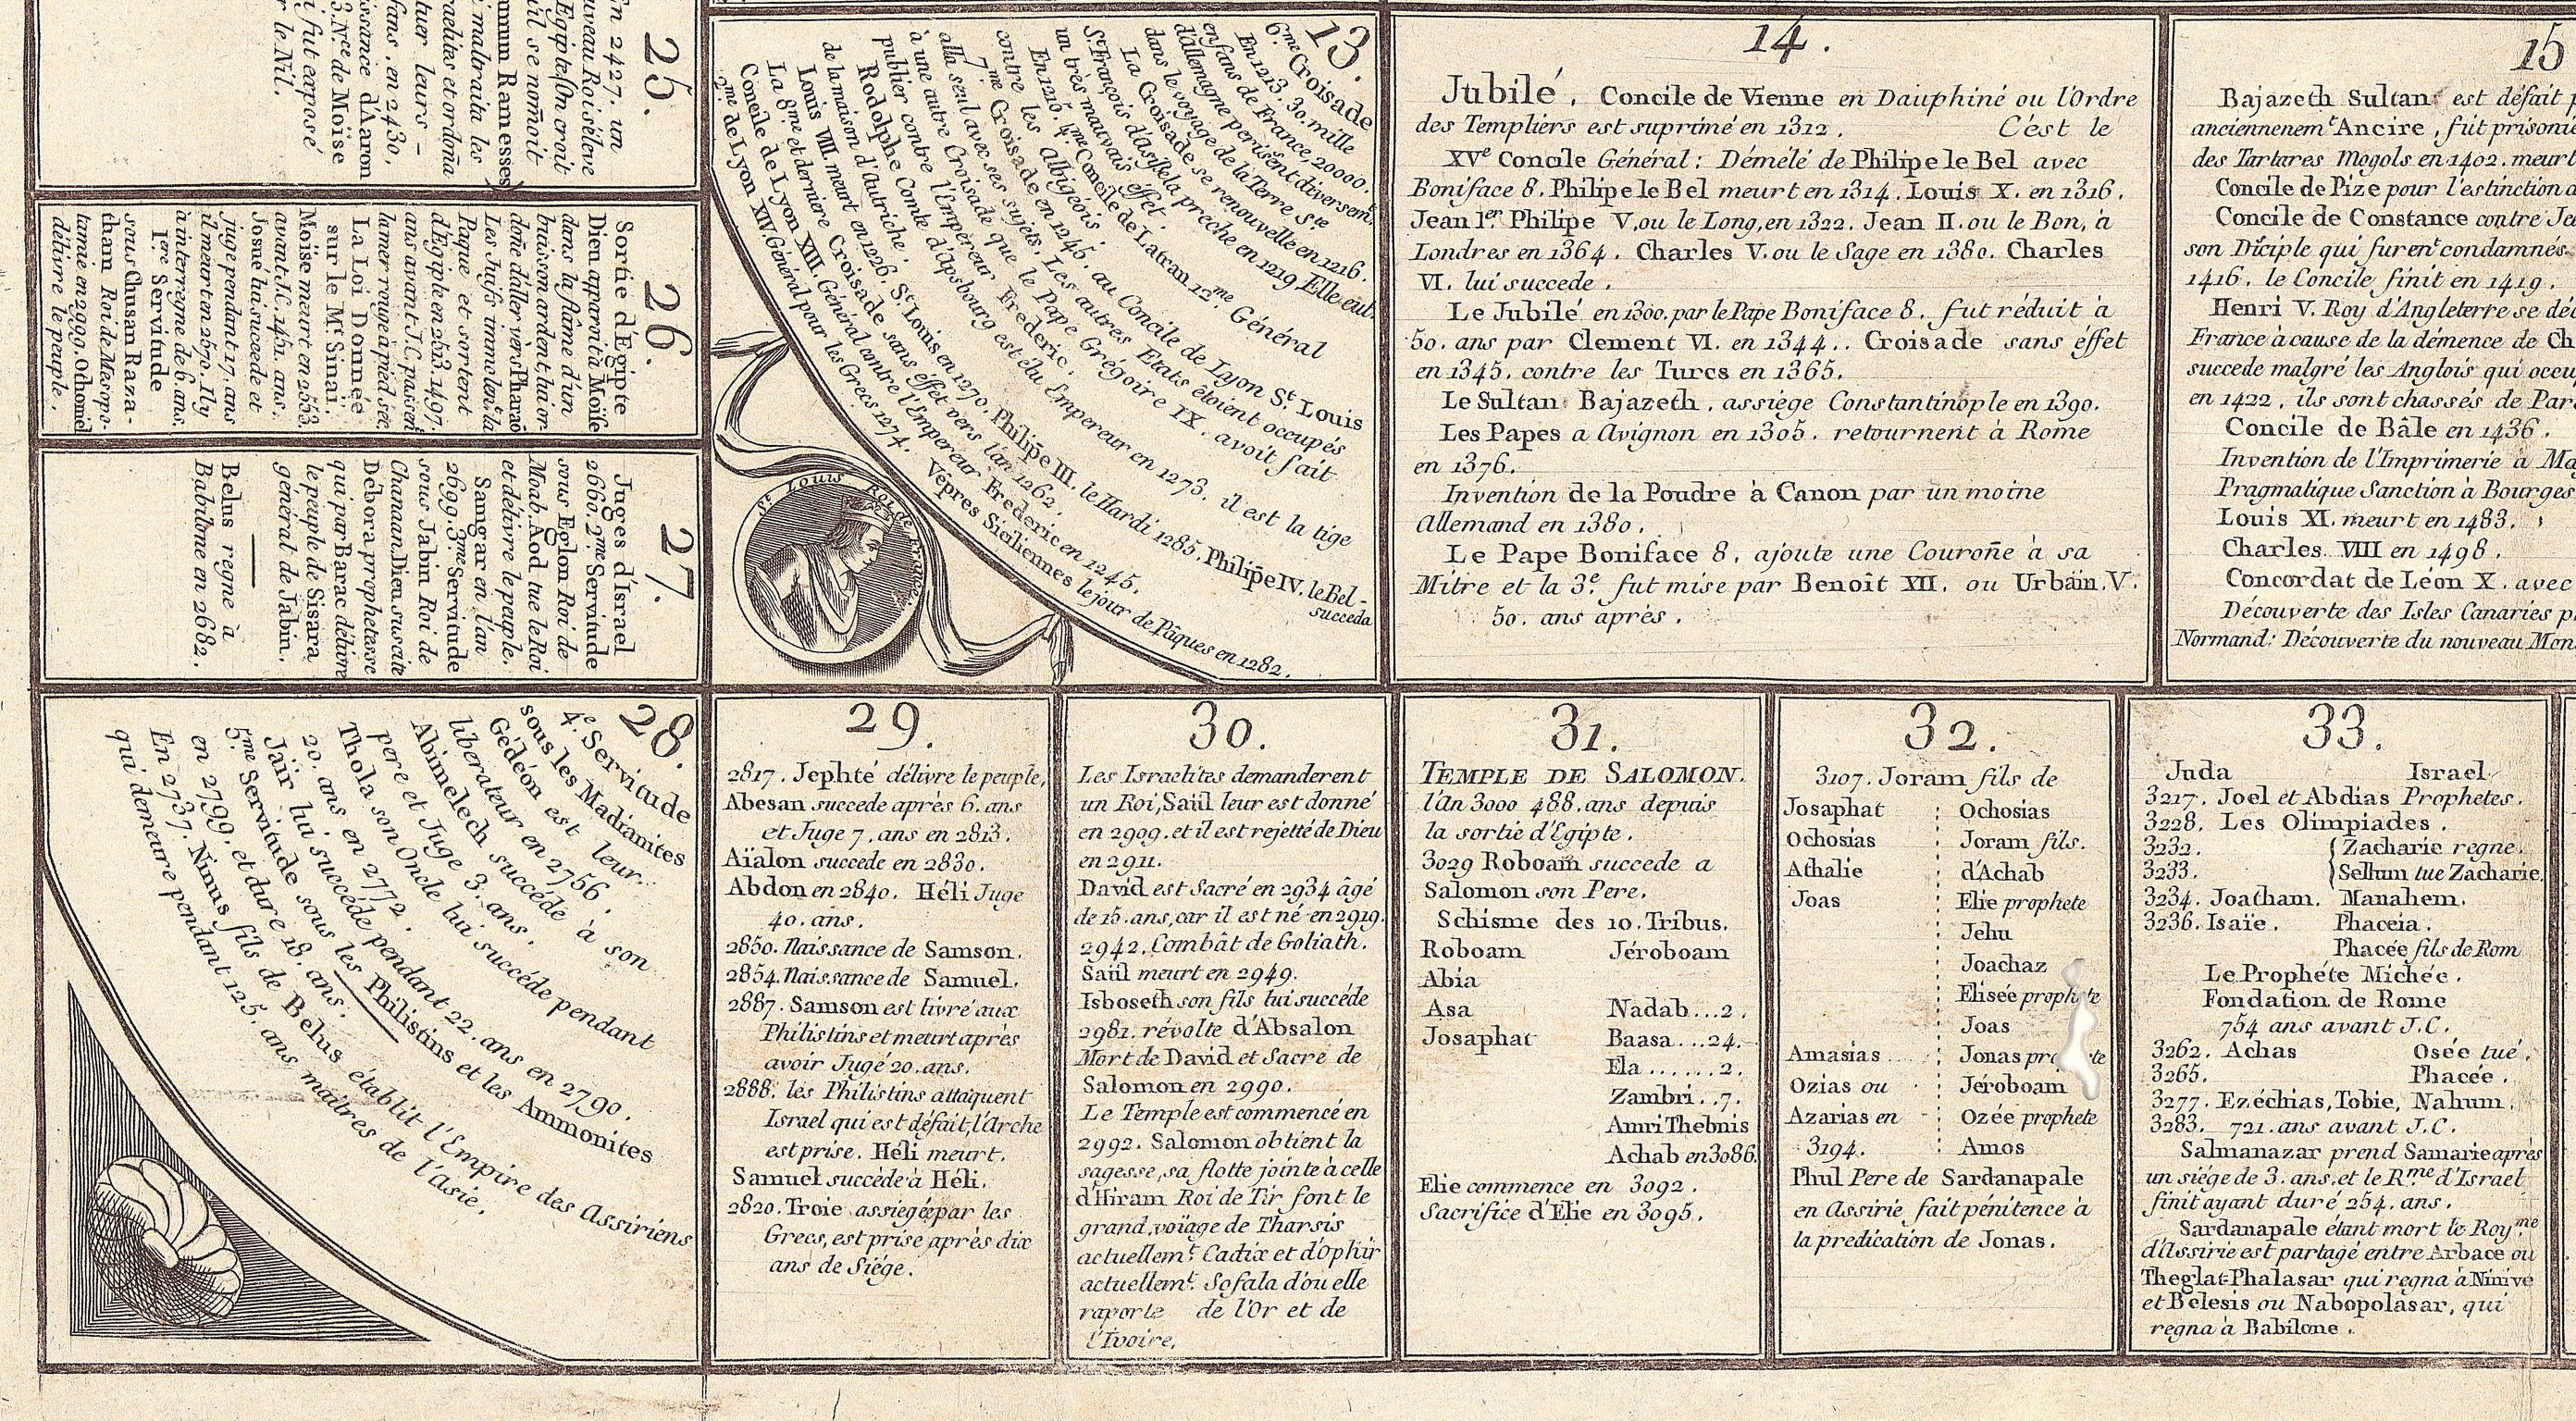 25.
n 2427. un
uveau Roi s'éleve
Egipte, on croit
il se nomoit
mum Ramesses
maltraita les
raelites et ordoña
tuer leurs -
fans, en 2430,
ssance d'Aaron
3. Nce de Moïse
i fut exposé
r le Nil.
26.
Sortie d'Egipte
Dieu aparoit à Moïse
dans la flâme d'un
buisson ardent, lui or-
doñe d'aller vèrs Pharaõ
Les Juifs immolent la
Paque et sortent
d'Egipte en 2513. 1497.
ans avant J.C. passent
la mer rouge à pied sec
La Loi Donnée
sur le Mt Sinaï.
Moïse meurt en 2553.
avant J.C. 1451. ans.
Josué lui succede et
juge pendant 17. ans
il meurt en 2570. Il y
a interregne de 6. ans.
1ere Servitude
sous Chusan Raza-
tham Roi de Mesopo-
tamie en 2599. Othoniel
délivre le peuple.
27.
Juges d'Israel
2660. 2me Servitude
sous Eglon Roi de
Moab. Aod tue le Roi
et délivre le peuple.
Samgar en l'an
2699. 3me Servitude
sous Jabin Roi de
Chanaan. Dieu suscite
Débora prophetesse
qui par Barac délivre
le peuple de Sisara
général de Jabin.
Belus regne à
Babilone en 2682.
13.
6me Croisade
En 1213. 30. mille
enfans de France, 20000.
d'Allemagne perissent diversemt
dans le voyage de la Terre Ste
La Croisade se renouvelle en 1216.
St François d'Assise la preche en 1219. Elle eut
un très mauvais effet.
En 1215. 4me Concile de Latran 12me Général
contre les Albigeois.
7me Croisade en 1245. au Concile de Lyon St Louis
alla seul avec ses sujets. Les autres Etats étoient occupés
à une autre Croisade que le Pape Grégoire IX. avoit fait
publier contre l'Empereur Frederic.
Rodolphe Comte d'Apsbourg est élu Empereur en 1273. il est la tige
de la maison d'Autriche.
Louis VIII. meurt en 1226. St Louis en 1270. Philipe III. le Hardi 1285. Philipe IV. le Bel -
succeda
La 8me et derniere Croisade sans éffet vers l'an 1262.
Concile de Lyon XIII. Général contre l'Empereur Frederic en 1245.
2me de Lyon XIV. Général pour les Grecs 1274. Vêpres Siciliennes le jour de Pâques en 1282.
St Louis Roi de France.
14.
Jubilé, Concile de Vienne en Dauphiné ou l'Ordre
des Templiers est suprimé en 1312. C'est le
XVe Concile Général: Démélé de Philipe le Bel avec
Boniface 8. Philipe le Bel meurt en 1314. Louis X. en 1316.
Jean Ier Philipe V, ou le Long, en 1322. Jean II. ou le Bon, à
Londres en 1364. Charles V. ou le Sage en 1380. Charles
VI. lui succede.
Le Jubilé en 1300. par le Pape Boniface 8. fut réduit à
50. ans par Clement VI. en 1344.. Croisade sans éffet
en 1345. contre les Turcs en 1365.
Le Sultan Bajazeth, assiége Constantinople en 1390.
Les Papes a Avignon en 1305. retournent à Rome
en 1376.
Invention de la Poudre à Canon par un moine
Allemand en 1380.
Le Pape Boniface 8. ajoute une Couroñe à sa
Mitre et la 3e. fut mise par Benoît XII. ou Urbain. V.
50. ans après.
15
Bajazeth Sultan est défait p
anciennenemt Ancire, fût prisonie
des Tartares Mogols en 1402. meurt
Concile de Pize pour l'estinction d
Concile de Constance contre Je
son Diciple qui furent condamnés
1416. le Concile finit en 1419.
Henri V. Roy d'Angleterre se dé
France à cause de la démence de Ch
succede malgré les Anglois qui occu
en 1422, ils sont chassés de Par
Concile de Bâle en 1436.
Invention de l'Imprimerie à Ma
Pragmatique Sanction à Bourges
Louis XI. meurt en 1483.
Charles VIII en 1498.
Concordat de Léon X. avec
Découverte des Isles Canaries p
Normand: Découverte du nouveau Mon
28.
4e. Servitude
sous les Madianites
Gédéon est leur
liberateur en 2756.
Abimelech succéde à son
pere et Juge 3. ans.
Thola son Oncle lui succéde pendant
20. ans en 2772.
Jaïr lui succéde pendant 22. ans en 2790.
5me Servitude sous les Philistins et les Ammonites
en 2799. et dure 18. ans.
En 2737. Ninus fils de Belus établit l'Empire des Assiriens
qui demeure pendant 125. ans maîtres de l'Asie.
29.
2817. Jephté délivre le peuple,
Abesan succede après 6. ans
et Juge 7. ans en 2813.
Aïalon succede en 2830.
Abdon en 2840. Héli Juge
40. ans.
2850. Naissance de Samson.
2854. Naissance de Samuel.
2887. Samson est livré aux
Philistins et meurt après
avoir Jugé 20. ans.
2888. les Philistins attaquent
Israel qui est défait, l'Arche
est prise. Héli meurt.
Samuel succède à Héli.
2820. Troie assiegée par les
Grecs, est prise après dix
ans de Siége.
30.
Les Israelites demanderent
un Roi, Saül leur est donné
en 2909. et il est rejetté de Dieu
en 2911.
David est Sacré en 2934 âgé
de 15. ans, car il est né en 2919.
2942. Combât de Goliath.
Saül meurt en 2949.
Isboseth son fils lui succéde
2981. révolte d'Absalon
Mort de David et Sacre de
Salomon en 2990.
Le Temple est commencé en
2992. Salomon obtient la
sagesse, sa flotte jointe à celle
d'Hiram Roi de Tir font le
grand voïage de Tharsis
actuellemt. Cadix et d'Ophir
actuellemt. Sofala d'ou elle
raporte de l'Or et de
l'Ivoire.
31.
TEMPLE DE SALOMON.
l'An 3000 488. ans depuis
la sortie d'Egipte.
3029 Roboam succede a
Salomon son Pere.
Schisme des 10. Tribus.
Roboam Jéroboam
Abia
Asa Nadab...2.
Josaphat Baasa...24.
Ela......2.
Zambri..7.
Amri Thebnis
Achab en 3086.
Elie commence en 3092.
Sacrifice d'Elie en 3095.
32.
3107. Joram fils de
Josaphat Ochosias
Ochosias Joram fils.
Athalie d'Achab
Joas Elie prophete
Jehu
Joachaz
Elisée prophete
Joas
Amasias Jonas
Ozias ou Jéroboam
Azarias en Ozée prophete
3194. Amos
Phul Pere de Sardanapale
en Assirie, fait pénitence à
la predication de Jonas.
33.
Juda Israel
3217. Joel et Abdias Prophetes.
3228. Les Olimpiades.
3232. Zacharie regne.
3233. Sellum tue Zacharie.
3234. Joatham. Manahem.
3236. Isaïe. Phaceia.
Phacée fils de Rom
Le Prophete Michée.
Fondation de Rome
754 ans avant J.C.
3262. Achas Osée tué.
3265. Phacée.
3277. Ezéchias, Tobie, Nahum.
3283. 721. ans avant J.C.
Salmanazar prend Samarie après
un siége de 3. ans. et le R.me d'Israel
finit ayant duré 254. ans.
Sardanapale étant mort le Roy.me
d'Assirie est partagé entre Arbace ou
Theglat-Phalasar qui regna à Ninive
et Belesis ou Nabopolasar, qui
regna à Babilone.